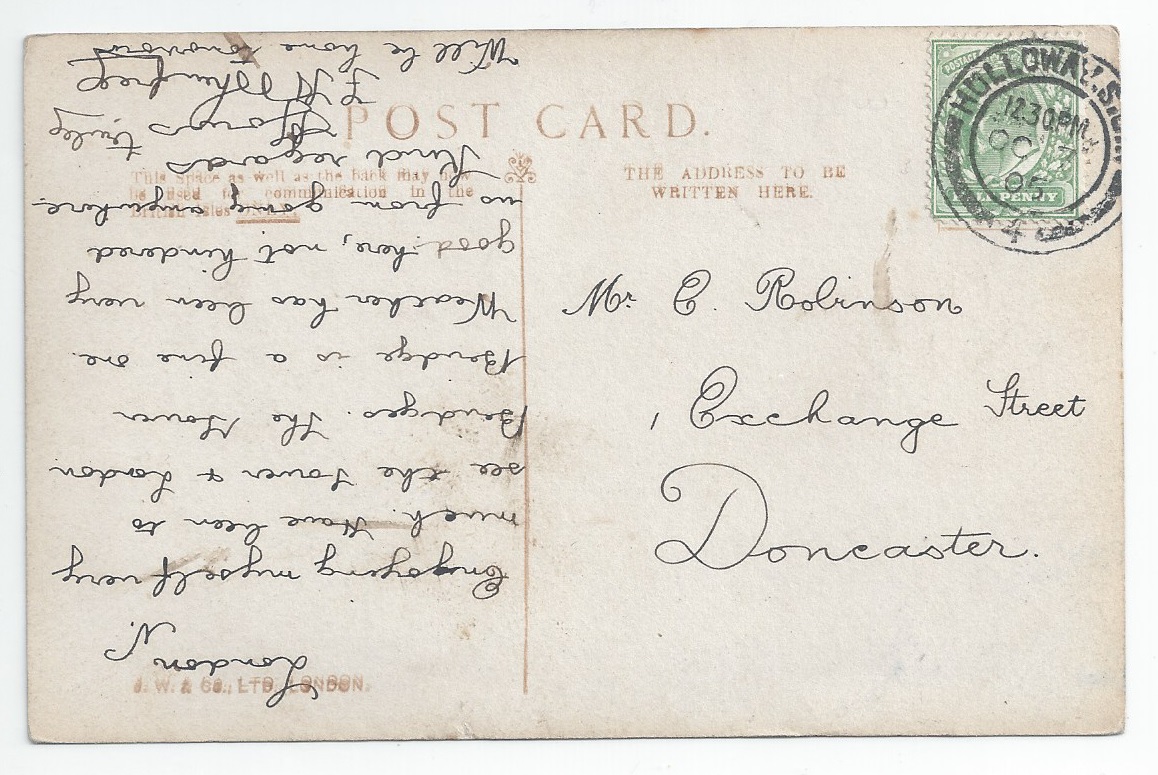 POST CARD.
This space as well as the back may now
be used for communication in the
British Isles
THE ADDRESS TO BE
WRITTEN HERE.
HOLLOWAY.S.O.N
12.30PM
OC 7
05
4
POSTAGE
PENNY
Mr E. Robinson
1 Exchange Street
Doncaster.
London
N.
Enjoying myself very
much. Have been to
see the Tower & London
Bridges. The Tower
Bridge is a fine one.
Weather has been very
good here, not hindered
us from going anywhere.
Kind regards
Yours truly
Will be home tomorrow
J. W. & Co., LTD, LONDON.